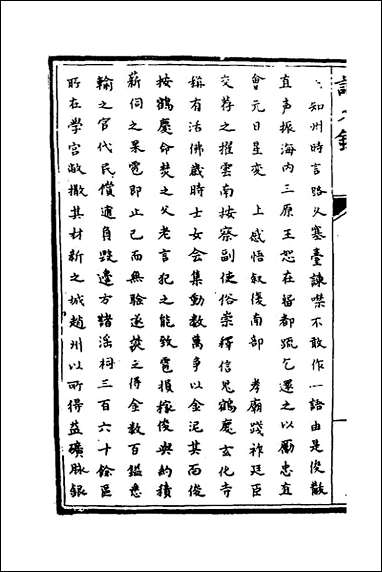 知州時言路久塞臺諫噤不敢作一語由是俊敢
直声振海内三原王恕在留都疏乞還之以勵忠直
會元日星变　上感悟叙復南部　孝廟踐祚廷臣
交荐之擢雲南按察副使俗崇釋信鬼鶴慶玄化寺
稱有活佛歲時士女会集動数萬争以金泥其面俊
按鶴慶命焚之父老言犯之能致雹損稼俊與約積
薪伺之果雹即止已而無驗遂焚之得金数百鎰悉
輸之官代民償逋負毀邊方諸淫祠三百六十餘區
所在學宫敝撤其材新之城趙州以所得益礦脉銀